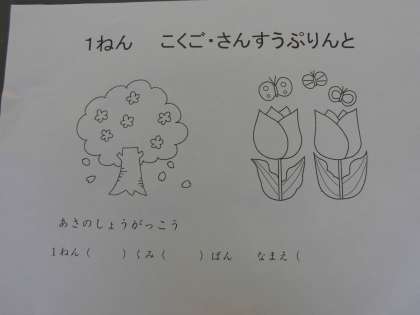 １ねん　こくご・さんすうぷりんと
あさのしょうがっこう
１ねん（　　）くみ（　　）ばん　なまえ（